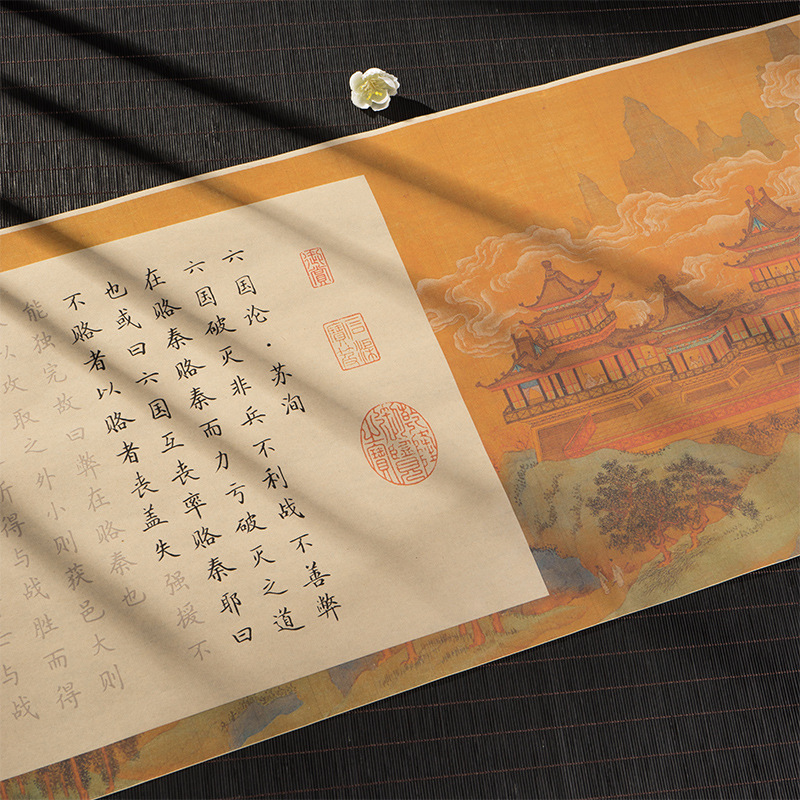 御賞
石渠寶笈
六国论·苏洵
六国破灭非兵不利战不善弊
在赂秦赂秦而力亏破灭之道
也或曰六国互丧率赂秦耶曰
不赂者以赂者丧盖失强援不
能独完故曰弊在赂秦也
以攻取之外小则获邑大则
得与战胜而得
与战